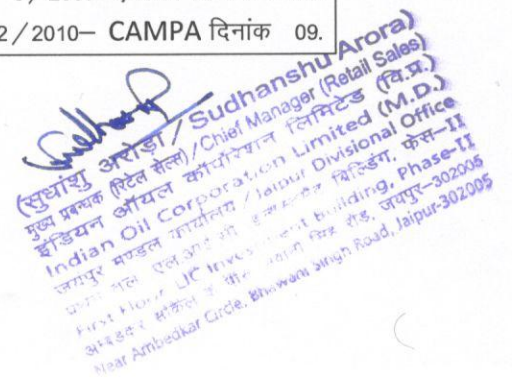 2/2010– CAMPA दिनांक 09.
(सुधांशु अरोड़ा / Sudhanshu Arora)
मुख्य प्रबन्धक (रिटेल सेल्स)/Chief Manager (Retail Sales)
इंडियन ऑयल कॉर्पोरेशन लिमिटेड (वि.प्र.)
Indian Oil Corporation Limited (M.D.)
जयपुर मण्डल कार्यालय / Jaipur Divisional Office
एल.आई.सी. बिल्डिंग, फेस–II
First Floor, LIC Investment Building, Phase-II
सिंह रोड़, जयपुर–302005
Near Ambedkar Circle, Bhawani Singh Road, Jaipur-302005